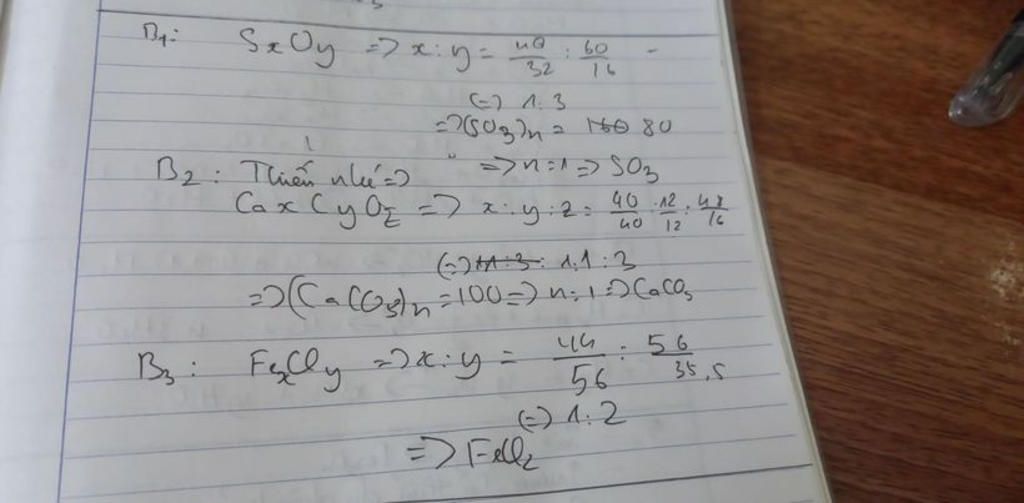 B1: SxOy => x:y = 40/32 : 60/16
(=) 1:3
=> (SO3)n = 160 80
=> n=1 => SO3
B2: Thiếu nhé =>
CaxCyOz => x:y:z = 40/40 : 12/12 : 48/16
(=) 1:3: 1:1:3
=> (CaCO3)n = 100 => n=1 => CaCO3
B3: FexCly => x:y = 44/56 : 56/35,5
(=) 1:2
=> FeCl2